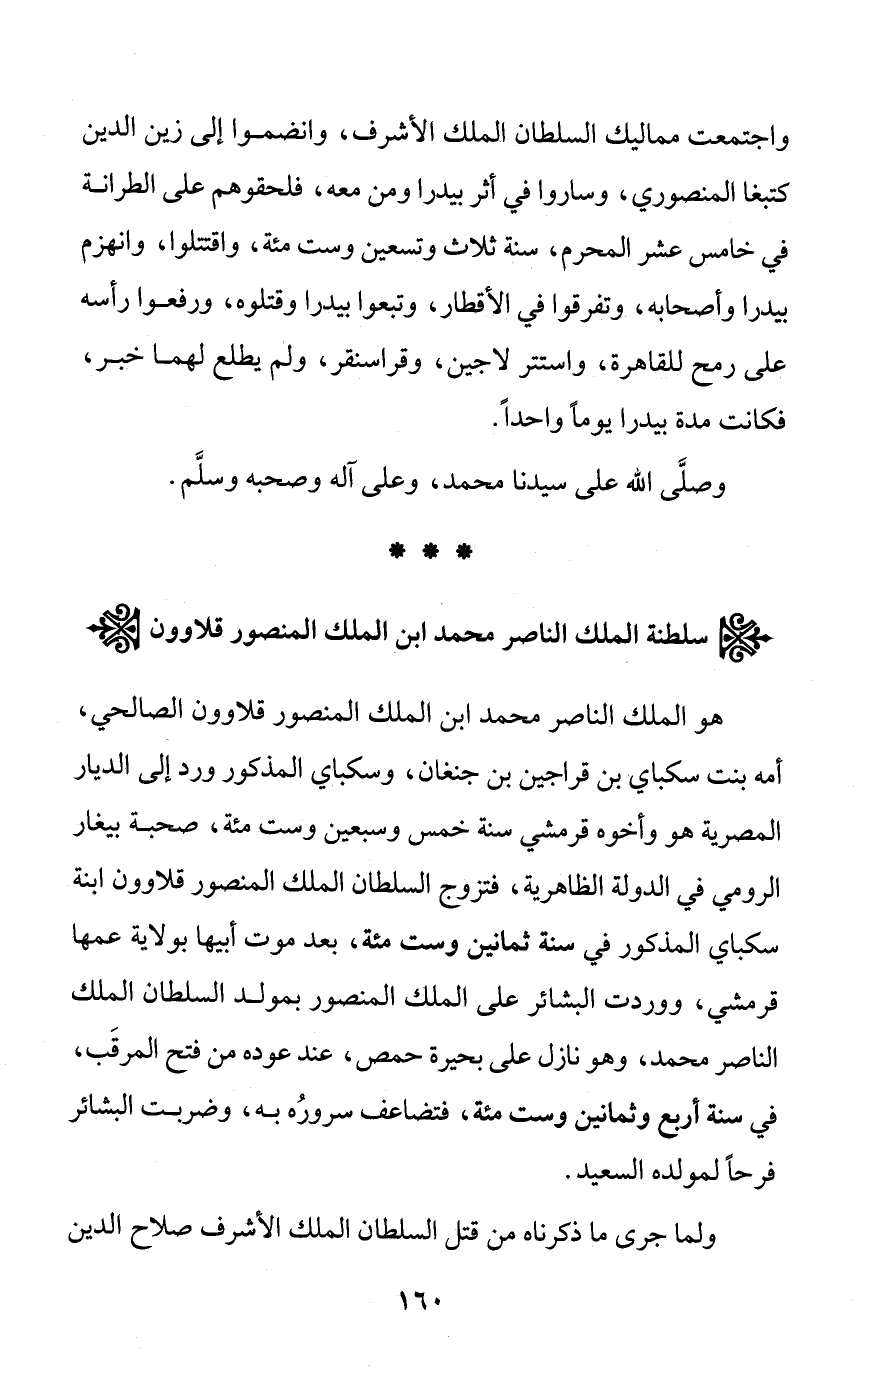 واجتمعت مماليك السلطان الملك الأشرف، وانضموا إلى زين الدين
كتبغا المنصوري، وساروا في أثر بيدرا ومن معه، فلحقوهم على الطرانة
في خامس عشر المحرم، سنة ثلاث وتسعين وست مئة، واقتتلوا، وانهزم
بيدرا وأصحابه، وتفرقوا في الأقطار، وتبعوا بيدرا وقتلوه، ورفعوا رأسه
على رمح للقاهرة، واستتر لاجين، وقراسنقر، ولم يطلع لهما خبر،
فكانت مدة بيدرا يوماً واحداً.
وصلَّى الله على سيدنا محمد، وعلى آله وصحبه وسلَّم.
* * *
سلطنة الملك الناصر محمد ابن الملك المنصور قلاوون
هو الملك الناصر محمد ابن الملك المنصور قلاوون الصالحي،
أمه بنت سكباي بن قراجين بن جنغان، وسكباي المذكور ورد إلى الديار
المصرية هو وأخوه قرمشي سنة خمس وسبعين وست مئة، صحبة بيغار
الرومي في الدولة الظاهرية، فتزوج السلطان الملك المنصور قلاوون ابنة
سكباي المذكور في سنة ثمانين وست مئة، بعد موت أبيها بولاية عمها
قرمشي، ووردت البشائر على الملك المنصور بمولد السلطان الملك
الناصر محمد، وهو نازل على بحيرة حمص، عند عوده من فتح المرقَب،
في سنة أربع وثمانين وست مئة، فتضاعف سرورُه به، وضربت البشائر
فرحاً لمولده السعيد.
ولما جرى ما ذكرناه من قتل السلطان الملك الأشرف صلاح الدين
١٦٠